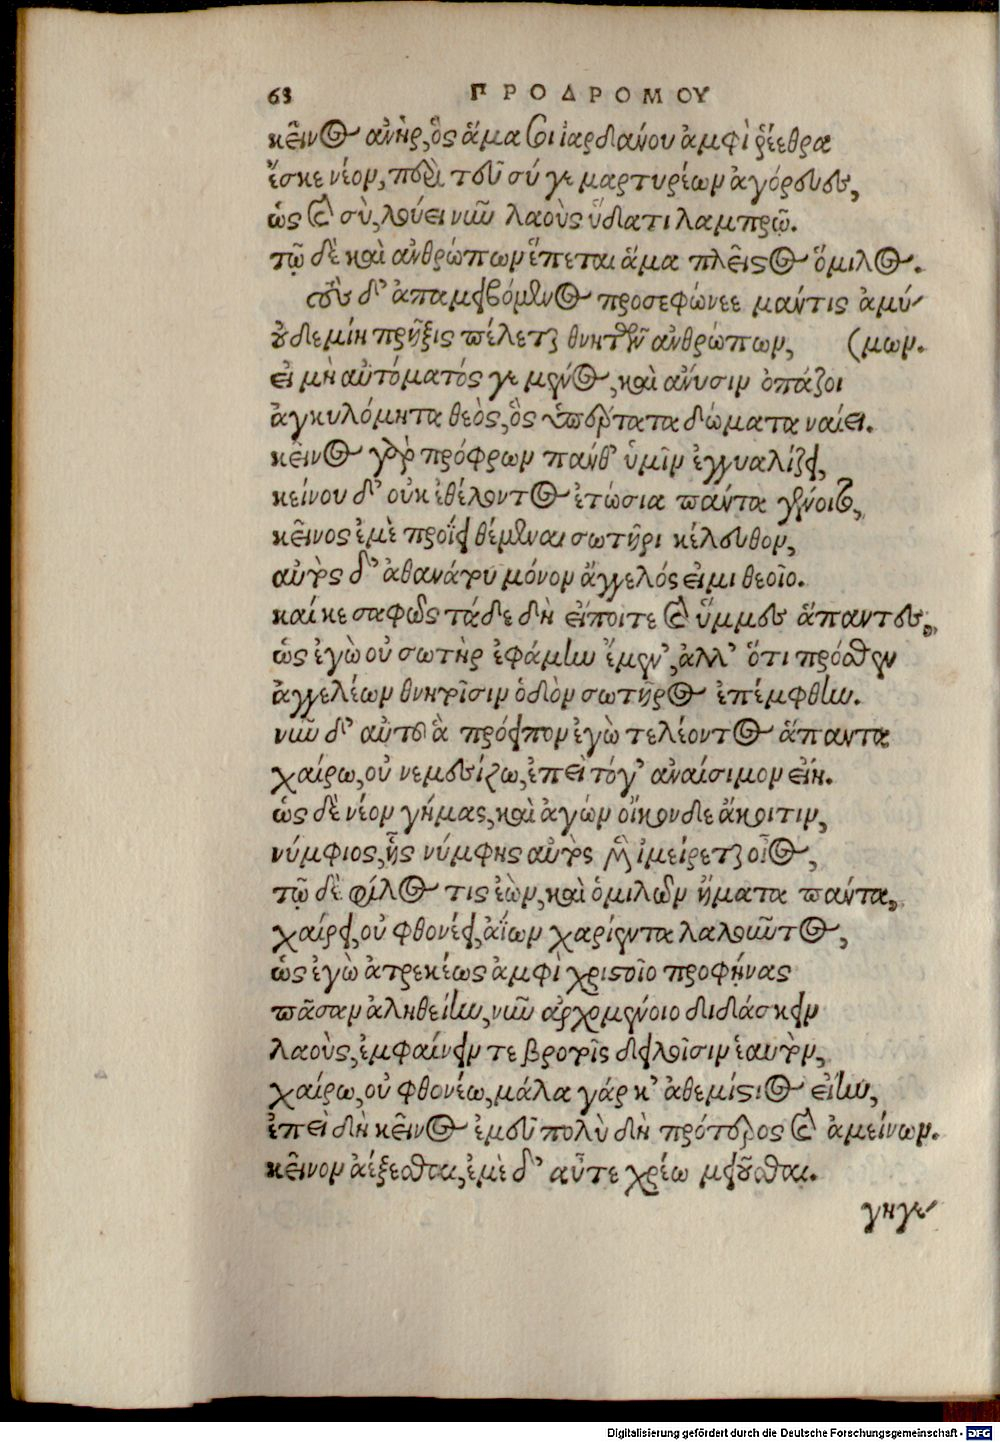 68 ΠΡΟΔΡΟΜΟΥ
κεῖνος ἀνὴρ, ὃς ἅμα σοι ἰαρδάνου ἀμφὶ ῥέεθρα
ἔσκε νέον, περὶ τοῦ σύ γε μαρτυρέων ἀγόρευες,
ὡς ἐσ σὺ, λούει νιῦ λαοὺς ὕδατι λαμπρῷ.
τῷ δὲ καὶ ἀνθρώπων ἕπεται ἅμα πλεῖστος ὅμιλος.
τὸν δ' ἀπαμειβόμενος προσεφώνεε μάντις ἀμύ-
οὐδεμίη πρῆξις πέλεται θνητῶν ἀνθρώπων, (μων.
εἰ μὴ αὐτόματός γε μένος, καὶ ἄνυσιν ὀπάζοι
ἀγκυλόμητα θεὸς, ὃς ὑπέρτατα δώματα ναίει.
κεῖνος γὰρ πρόφρων πάνθ' ὑμῖν ἐγγυαλίζει,
κείνου δ' οὐκ ἐθέλοντος ἐτώσια πάντα γένοιτο,
κεῖνος ἐμὲ προΐει θέμεναι σωτῆρι κέλευθον,
αὐτὸς δ' ἀθανάτου μόνον ἄγγελός εἰμι θεοῖο.
καί κε σαφῶς τάδε δὴ εἴποιτε ἐσ ὔμμες ἅπαντες,
ὡς ἐγὼ οὐ σωτὴρ ἐφάμην ἔμεν', ἀλλ' ὅτι πρόσθεν
ἀγγελέων θνητοῖσιν ὁδὸν σωτῆρος ἐπέμφθην.
νῦν δ' αὖτε ἃ πρόειπον ἐγὼ τελέοντος ἅπαντα
χαίρω, οὐ νεμεσίζω, ἐπεὶ τόγ' ἀναίσιμον εἴη.
ὡς δὲ νέον γήμας, καὶ ἀγών οἴκονδε ἄκοιτιν,
νύμφιος, ἧς νύμφης αὐτὸς μὲν ἱμείρεται οἶος,
τῷ δὲ φίλος τις ἐὼν, καὶ ὁμιλῶν ἤματα πάντα,
χαίρει, οὐ φθονέει, ἀΐων χαρίεντα λαλοῦντος,
ὡς ἐγὼ ἀτρεκέως ἀμφὶ χριστοῖο προφήνας
πᾶσαν ἀληθείην, νῦν ἀρχομένοιο διδάσκειν
λαοὺς, ἐμφαίνειν τε βροτοῖς δειλοῖσιν ἑαυτὸν,
χαίρω, οὐ φθονέω, μάλα γάρ κ' ἀθεμίστιος εἴην,
ἐπεὶ δὴ κεῖνος ἐμεῦ πολὺ δὴ πρότερος ἐσ ἀμείνων.
κεῖνον ἀέξεσθαι, ἐμὲ δ' αὖτε χρέω μειοῦσθαι.
γηγε-
Digitalisierung gefördert durch die Deutsche Forschungsgemeinschaft - DFG